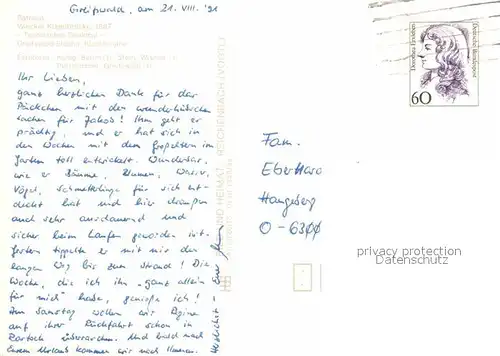 Greifswald, am 21. VIII. '91
Ihr Lieben,
ganz herzlichen Dank für das
Päckchen mit den wunderhübschen
Sachen für Jakob! Ihm geht es
prächtig, und er hat sich in
den Wochen mit den Großeltern im
Garten toll entwickelt. Wunderbar,
wie er Bäume, Blumen, Wasser,
Vögel, Schmetterlinge für sich ent-
deckt hat und hier draußen
auch sehr ausdauernd und
sicher beim Laufen geworden ist.
Gestern tippelte er mit mir den
langen Weg bis zum Strand! Die
Woche, die ich ihn "ganz allein
für mich" habe, genieße ich!
Am Samstag wollen wir
auf ihrer Rückfahrt schon in
Rostock überraschen. Und bald nach
Eurem Urlaub kommen wir nach Hause.
Herzlichst Eure
UND HEIMAT REICHENBACH (VOGTL)
Dorothea Erxleben
Deutsche Bundespost
60
Fam.
Eberhard
Hangeberg
O-6300
privacy protection
Datenschutz